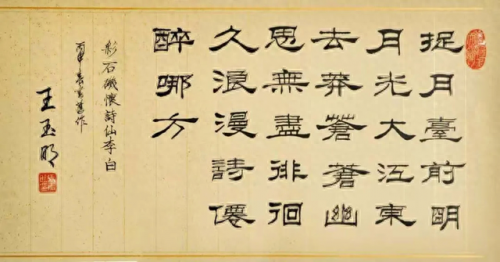 捉月臺前明
月光大江東
去莽蒼蒼幽
思無盡徘徊
久浪漫詩僊
醉哪方
彩石磯懷詩仙李白
丙申春作
王玉明